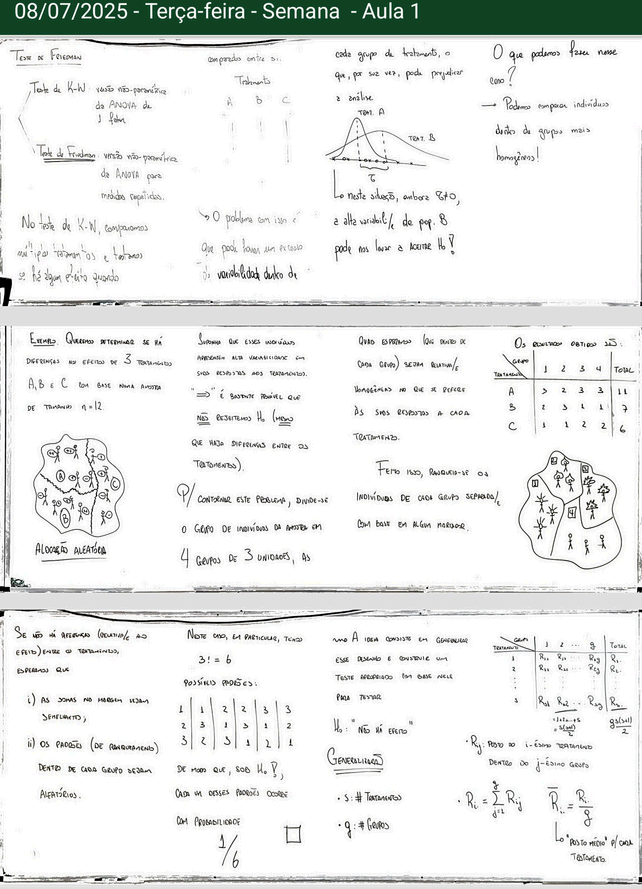 08/07/2025 - Terça-feira - Semana - Aula 1
TESTE DE FRIEDMAN
Teste de K-W versão não-paramétrica
da ANOVA de
1 fator
Teste de Friedman: versão não-paramétrica
da ANOVA para
medidas repetidas.
No teste de K-W, comparamos
múltiplos tratamentos e testamos
se há algum efeito quando
comparados entre si.
Tratamento
A B C
O problema com isso é
que pode haver um excesso
de variabilidade dentro de
cada grupo de tratamento, o
que, por sua vez, pode prejudicar
a análise
TRAT. A
TRAT. B
τ
Lo neste situação, embora τ≠0,
a alta variabili/e de pop. B
pode nos levar a ACEITAR H₀!
O que podemos fazer nesse
caso?
→ Podemos comparar indivíduos
dentro de grupos mais
homogêneos!
EXEMPLO. QUEREMOS DETERMINAR SE HÁ
DIFERENÇAS NO EFEITOS DE 3 TRATAMENTOS
A, B E C COM BASE NUMA AMOSTRA
DE TAMANHO n=12.
A
C
B
ALOCAÇÃO ALEATÓRIA
SUPONHA QUE ESSES INDIVÍDUOS
APRESENTEM ALTA VARIABILIDADE EM
SUAS RESPOSTAS AOS TRATAMENTOS.
"⟹" É BASTANTE PROVÁVEL QUE
NÃO REJEITEMOS H₀ (MESMO
QUE HAJA DIFERENÇAS ENTRE OS
TRATAMENTOS).
P/ CONTORNAR ESTE PROBLEMA, DIVIDE-SE
O GRUPO DE INDIVÍDUOS DA AMOSTRA EM
4 GRUPOS DE 3 UNIDADES, AS
QUAIS ESPERAMOS (QUE DENTRO DE
CADA GRUPO) SEJAM RELATIVA/E
HOMOGÊNEAS NO QUE SE REFERE
ÀS SUAS RESPOSTAS A CADA
TRATAMENTO.
FEITO ISSO, RANQUEIA-SE OS
INDIVÍDUOS DE CADA GRUPO SEPARADA/E
COM BASE EM ALGUM MARCADOR.
OS RESULTADOS OBTIDOS SÃO:
GRUPO
TRATAMENTO 1 2 3 4 TOTAL
A 3 2 3 3 11
B 2 3 1 1 7
C 1 1 2 2 6
1
2
3
4
SE NÃO HÁ DIFERENÇAS (RELATIVA/E AO
EFEITO) ENTRE OS TRATAMENTOS,
ESPERAMOS QUE
i) AS SOMAS NA MARGEM SEJAM
SEMELHANTES;
ii) OS PADRÕES (DE RANQUEAMENTO)
DENTRO DE CADA GRUPO SEJAM
ALEATÓRIOS.
NESTE CASO, EM PARTICULAR, TEMOS
3! = 6
POSSÍVEIS PADRÕES:
1 1 2 2 3 3
2 3 1 3 1 2
3 2 3 1 2 1
DE MODO QUE, SOB H₀!,
CADA UM DESSES PADRÕES OCORRE
COM PROBABILIDADE
1/6
A IDEIA CONSISTE EM GENERALIZAR
ESSE DESENHO E CONSTRUIR UM
TESTE APROPRIADO COM BASE NELE
PARA TESTAR
H₀: "NÃO HÁ EFEITO"
GENERALIZAÇÃO
• s: # TRATAMENTOS
• g: # GRUPOS
GRUPO
TRATAMENTO 1 2 ... g TOTAL
1 R₁₁ R₁₂ ... R₁g R₁.
2 R₂₁ R₂₂ ... R₂g R₂.
s Rs₁ Rs₂ ... Rsg Rs.
=1+2+...+s
= s(s+1)/2
gs(s+1)/2
• Rij: POSTO DO i-ÉSIMO TRATAMENTO
DENTRO DO j-ÉSIMO GRUPO
• Ri. = Σ Rij
g
j=1
R̄i. = Ri./g
Lo "POSTO MÉDIO" P/ CADA
TRATAMENTO.